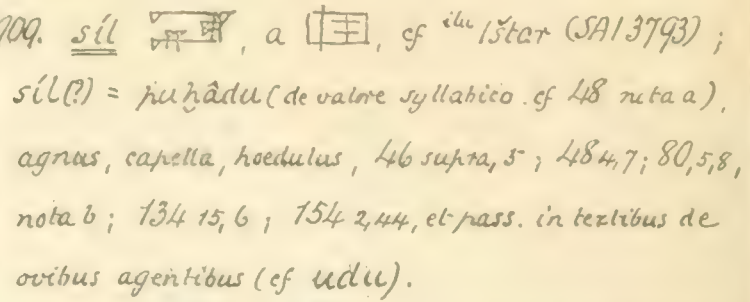 909. síl , a , cf ilu Ištar (SAI 3793) ;
síl(?) = puḫâdu (de valore syllabico. cf 48 nota a),
agnus, capella, hoedulus, 46 supra, 5 ; 48 4,7 ; 80,5,8,
nota b ; 134 15,6 ; 154 2,44, et pass. in textibus de
ovibus agentibus (cf udu).